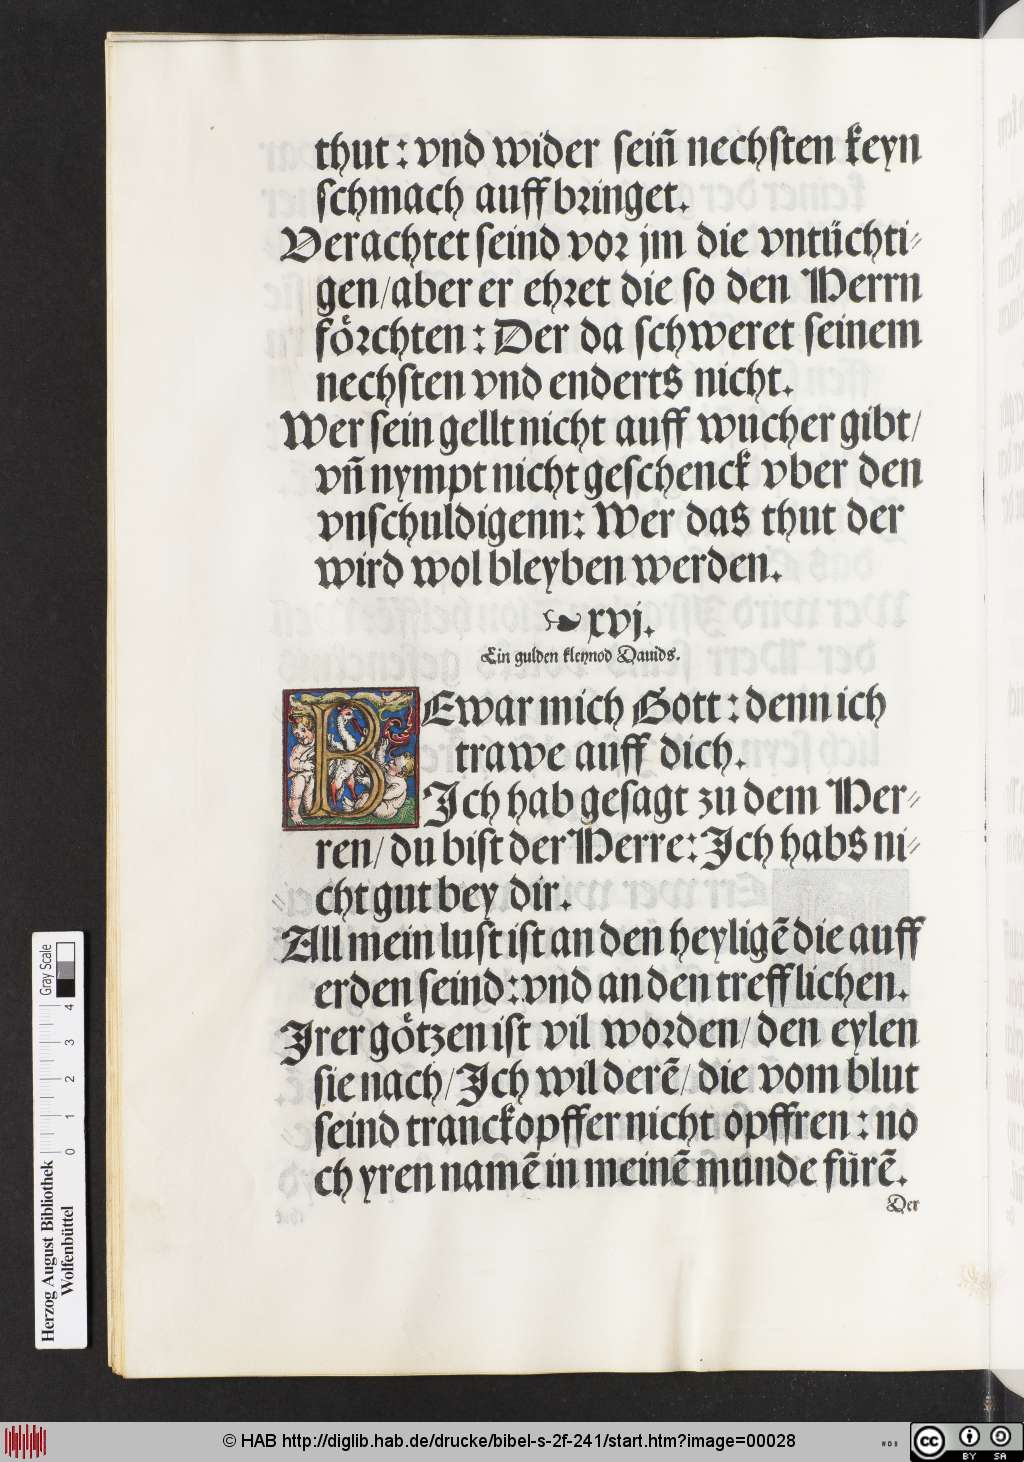 thut: vnd wider sein̄ nechsten keyn
schmach auffbringet.
Verachtet seind vor jm die vntüchti⸗
gen/aber er ehret die so den Herrn
föꝛchten: Der da schweret seinem
nechsten vnd enderts nicht.
Wer sein gellt nicht auff wucher gibt/
vn̄ nympt nicht geschenck vber den
vnschuldigenn: Wer das thut der
wird wol bleyben werden.
❧ xvj.
Ein gulden kleynod Dauids.
BEwar mich Gott: denn ich
trawe auff dich.
Ich hab gesagt zu dem Her⸗
ren/ du bist der Herre: Ich habs ni⸗
cht gut bey dir.
All mein lust ist an den heyligē die auff
erden seind: vnd an den trefflichen.
Irer götzen ist vil worden/ den eylen
sie nach/ Ich wil derē/ die vom blut
seind tranckopffer nicht opffren: no
ch yren namē in meinē munde fürē.
Der
Gray Scale
0 1 2 3 4
Herzog August Bibliothek
Wolfenbüttel
© HAB http://diglib.hab.de/drucke/bibel-s-2f-241/start.htm?image=00028
WDB
cc BY SA